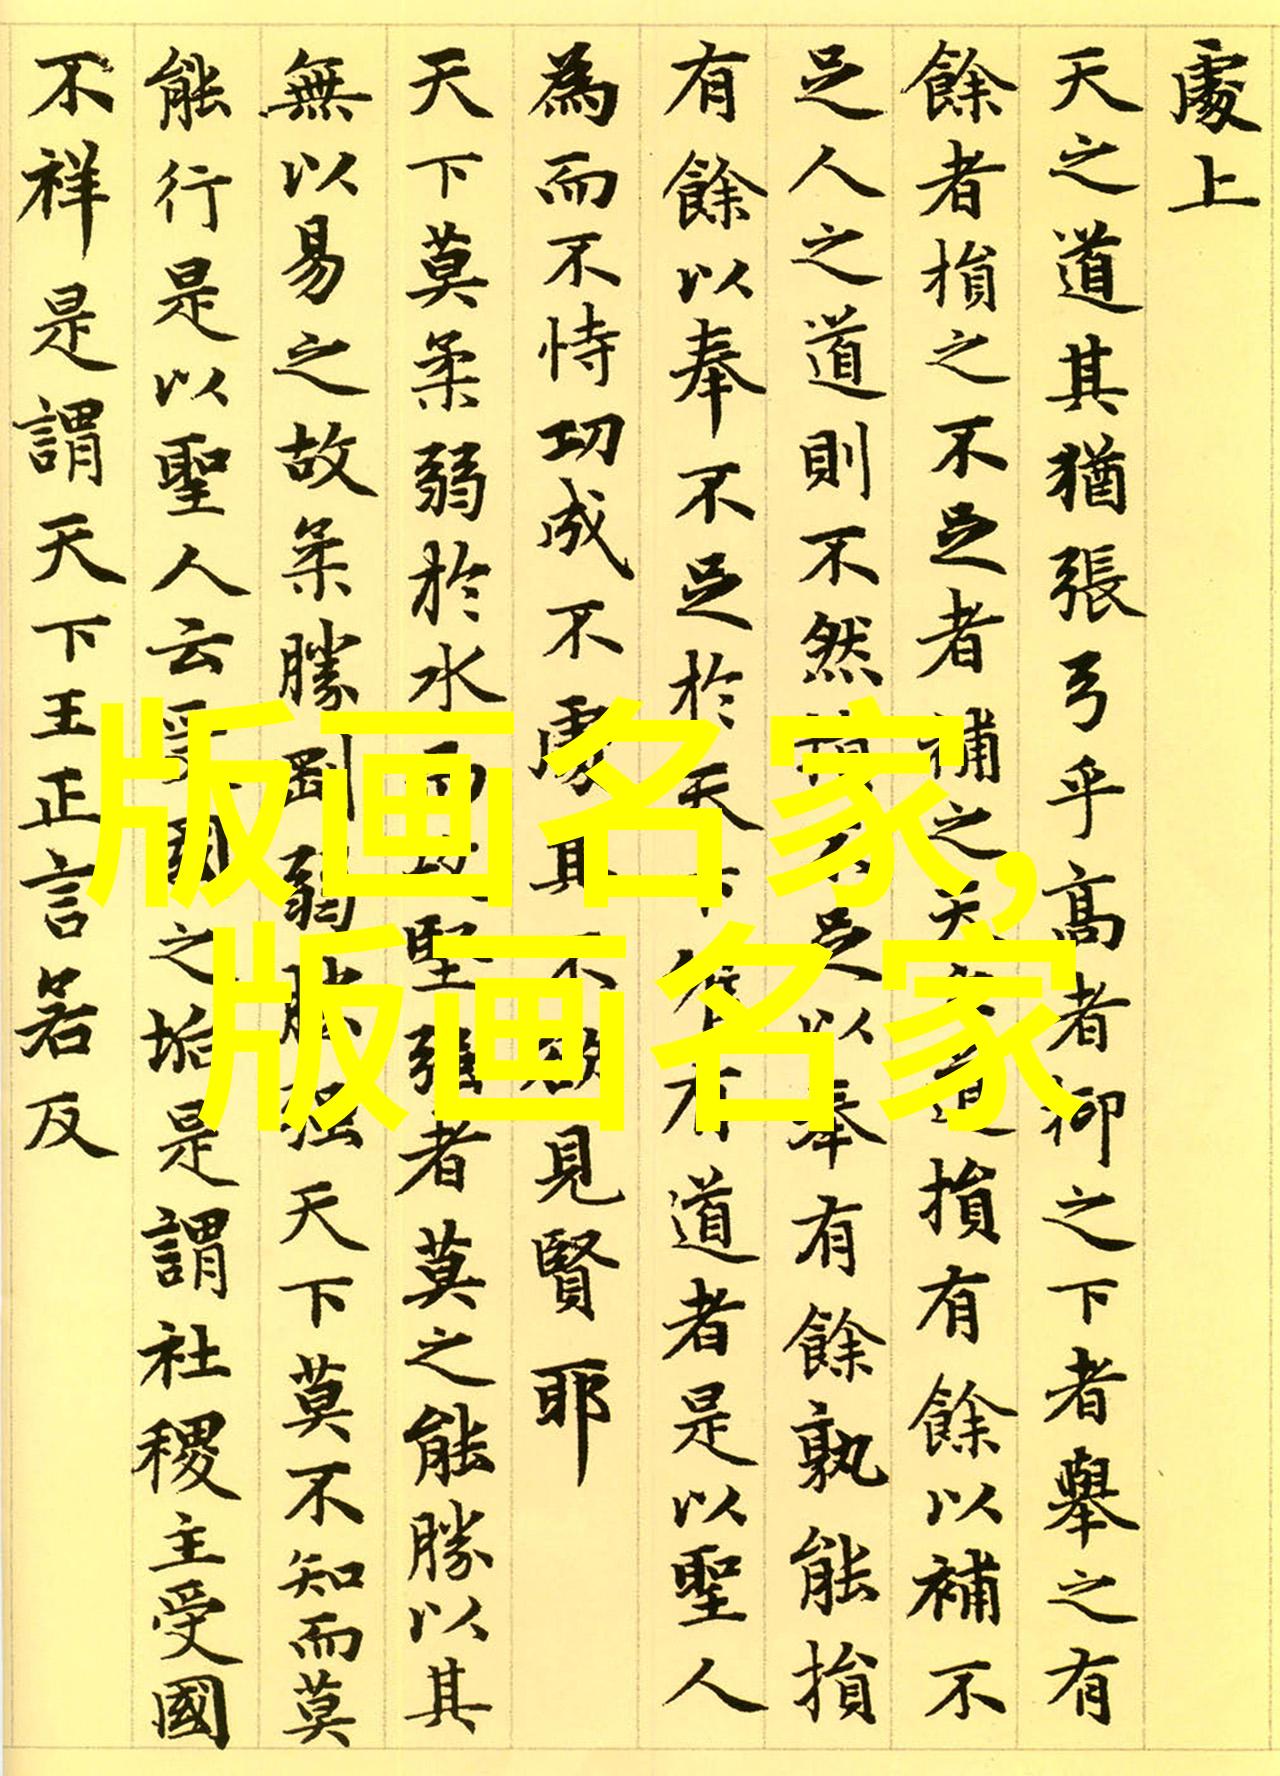 處上
天之道其猶張弓乎高者抑之下者舉之有
餘者損之不足者補之天之道損有餘以補不
足人之道則不然損不足以奉有餘孰能損
有餘以奉不足於天下唯有道者是以聖人
為而不恃功成不處其不欲見賢耶
天下莫柔弱於水而攻堅强者莫之能勝以其
無以易之故柔勝剛弱勝强天下莫不知而莫
能行是以聖人云受國之垢是謂社稷主受國
不祥是謂天下王正言若反
版画名家,
版画名家